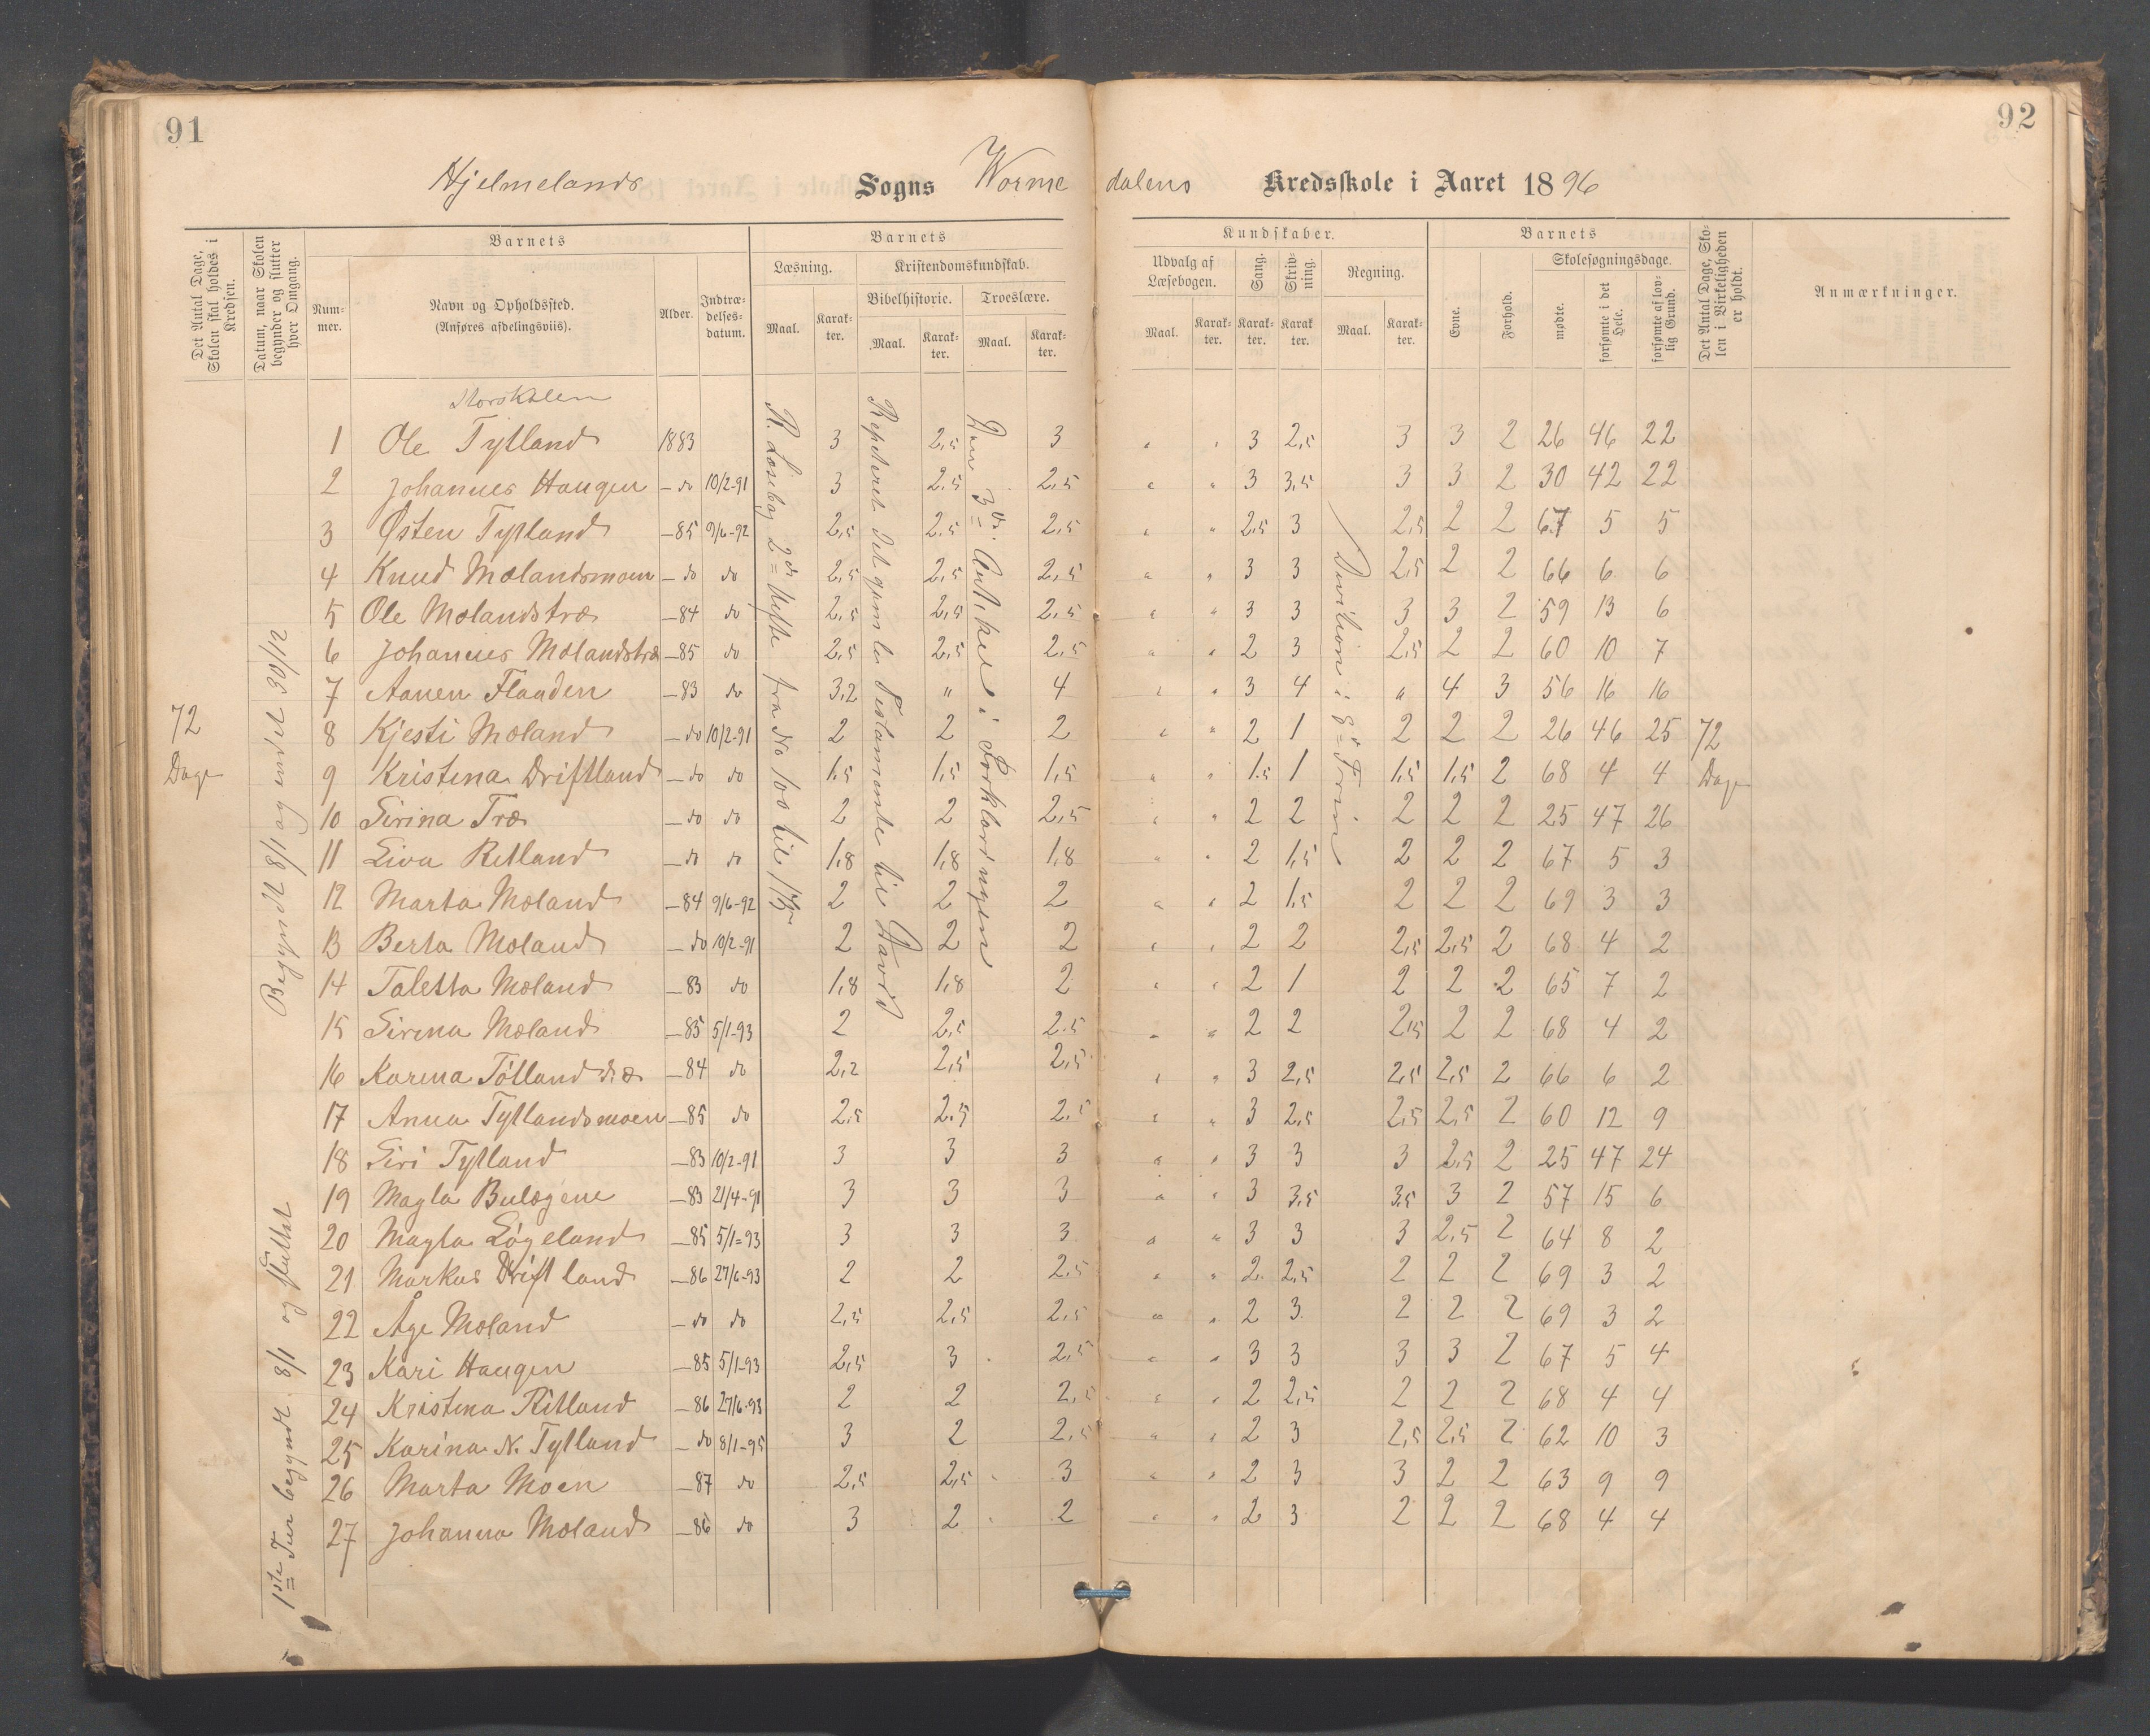 91
92
Hjelmelands Sogns Vorme dalens Kredsskole i Aaret 1896
Det Antal Dage, Skolen skal holdes i Kredsen.
Datum, naar Skolen begynder og slutter hver Omgang.
Barnets
Nummer.
Navn og Opholdssted. (Anføres afdelingsviis).
Alder.
Indtrædelsesdatum.
Barnets
Læsning.
Maal.
Karakter.
Kristendomskundskab.
Bibelhistorie.
Maal.
Karakter.
Troeslære.
Maal.
Karakter.
Kundskaber.
Udvalg af Læsebogen.
Maal.
Karakter.
Sang.
Karakter.
Skrivning.
Karakter.
Regning.
Maal.
Karakter.
Barnets
Evne.
Forhold.
Skolesøgningsdage.
mødte.
forsømte i det Hele.
forsømte af lovlig Grund.
Det Antal Dage, Skolen i Virkeligheden er holdt.
Anmærkninger.
Storskolen
72 Dage
Begyndt 8/1 og endet 30/12
1ste Tur begyndt 8/1 og sluttet
R. Læsebog 2det Hefte fra No 100 til
Repeteret det gamle Testamente til David
Den 3die Artikel i Forklaringen
Division i g= Form
72 Dage
1 Ole Tytland 1883 3 2,5 3 " " 3 2,5 3 3 2 26 46 22
2 Johannes Haugen — do 10/2-91 3 2,5 2,5 " " 3 3,5 3 3 2 30 42 22
3 Østen Tytland —85 9/6-92 2,5 2,5 2,5 " " 2,5 3 2,5 2 2 67 5 5
4 Knud Mælandsmoen — do do 2,5 2,5 2,5 " " 3 3 2,5 2 2 66 6 6
5 Ole Mælandstræ —84 do 2,5 2,5 2,5 " " 3 3 3 3 2 59 13 6
6 Johannes Mælandstræ —85 do 2,5 2,5 2,5 " " 2 3 2,5 2 2 60 10 7
7 Aanen Flaaden —83 do 3,2 " 4 " " 3 4 " 4 3 56 16 16
8 Kjesti Mæland — do 10/2-91 2 2 2 " " 2 1 2 2 2 26 46 25
9 Kristina Driftland — do do 1,5 1,5 1,5 " " 1,5 1 1,5 1,5 2 68 4 4
10 Sirina Træ — do do 2 2 2,5 " " 2 2 2 2 2 25 47 26
11 Siva Ritland — do do 1,8 1,8 1,8 " " 2 1,5 2 2 2 67 5 3
12 Marta Mæland —84 9/6-92 2 2 2 " " 2 1,5 2 2 2 69 3 3
13 Berta Mæland — do 10/2-91 2 2 2 " " 2 2 2,5 2,5 2 68 4 2
14 Taletta Mæland —83 do 1,8 1,8 2 " " 2 1 2 2 2 65 7 2
15 Sirina Mæland —85 5/1-93 2 2,5 2,5 " " 2 2 2,5 2 2 68 4 2
16 Karina Tøtlandstræ —84 do 2,2 2,5 2,5 " " 3 2,5 2,5 2,5 2 66 6 2
17 Anna Tytlandsmoen —85 do 2,5 2,5 2,5 " " 3 2,5 2,5 2,5 2 60 12 9
18 Siri Tytland —83 10/2-91 3 3 3 " " 3 3 3 2,5 2 25 47 24
19 Magla Bulægene —83 21/4-91 3 3 3 " " 3 3,5 3,5 3 2 57 15 6
20 Magla Løgeland —85 5/1-93 3 3 3 " " 3 3 3 2,5 2 64 8 2
21 Markus Driftland —86 27/6-93 2 2 2,5 " " 2 2,5 2 2 2 69 3 2
22 Åge Mæland — do do 2,5 2,5 2,5 " " 2 3 2 2 2 69 3 2
23 Kari Haugen —85 5/1-93 2,5 3 2,5 " " 3 3 3 3 2 67 5 4
24 Kristina Ritland —86 27/6-93 2 2 2,5 " " 2 2,5 2 2 2 68 4 4
25 Karina N. Tytland — do 8/1-95 3 2 2,5 " " 2 3 2,5 2,5 2 62 10 3
26 Marta Moen —87 do 2,5 2,5 3 " " 2 3 3 2 2 63 9 9
27 Johanna Mæland —86 do 3 2 2 " " 2 3 2 2 2 68 4 4